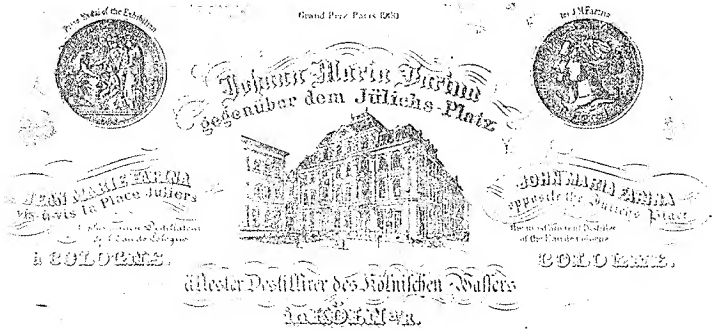 Prize Medal of the Exhibition
Grand Prix Paris 1900
for J.M.Farina
Johann Maria Farina
gegenüber dem Jülichs-Platz
JEAN MARIE FARINA
vis-à-vis la Place Juliers
Distillateur
de l'Eau de Cologne
à COLOGNE.
JOHN MARIA FARINA
opposite the Juliers Place
the most ancient Distiller
of the Eau de Cologne
COLOGNE.
ältester Destillirer des Kölnischen Wassers
in KÖLN a/R.